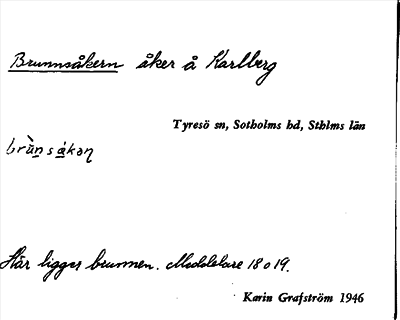 Brunnsåkern åker å Karlberg
Tyresö sn, Sotholms hd, Sthlms län
brùn̲så̲kəɳ
Här ligger brunnen. Meddelare 18 o 19.
Karin Grafström 1946